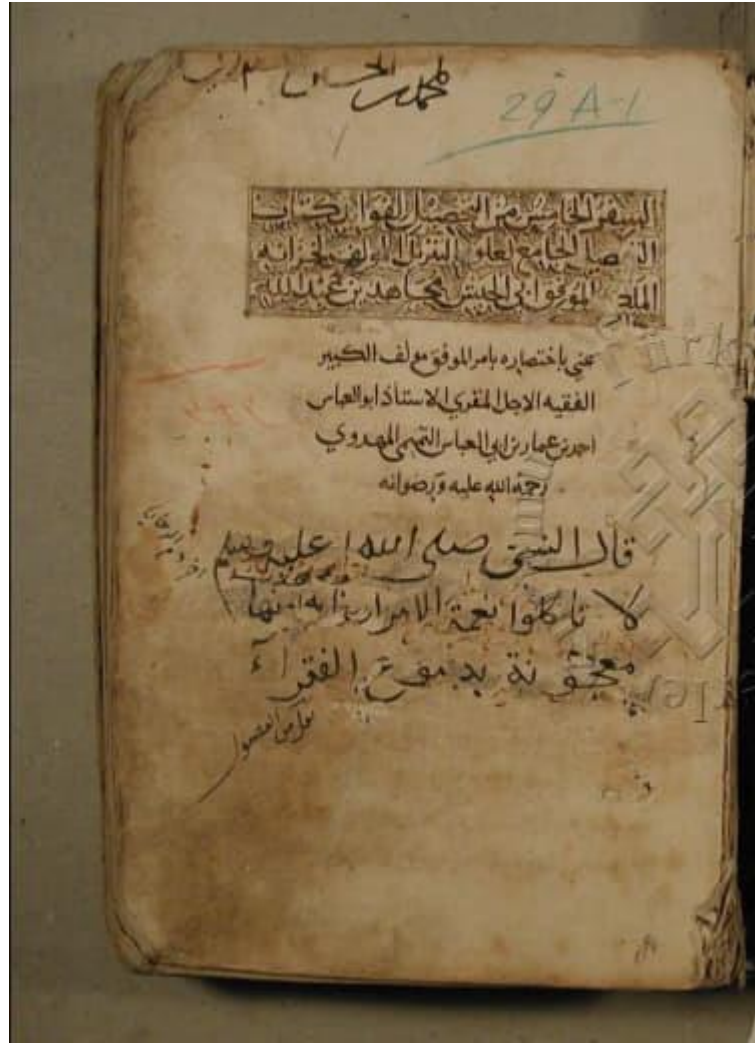 29 A-1
السفر الخامس من التحصيل لفوائد كتاب
التفصيل الجامع لعلوم التنزيل المولف لخزانة
الملك الموفق ابي الجيش مجاهد بن عبد الله
عني باختصاره بامر الموفق مولف الكبير
الفقيه الاجل المقري الاستاذ ابو العباس
احمد بن عمار بن ابي العباس التميمي المهدوي
رحمة الله عليه ورضوانه
قال النبي صلى الله عليه وسلم
لا تاكلوا نعمة الامرا فانها
معجونة بدموع الفقراء